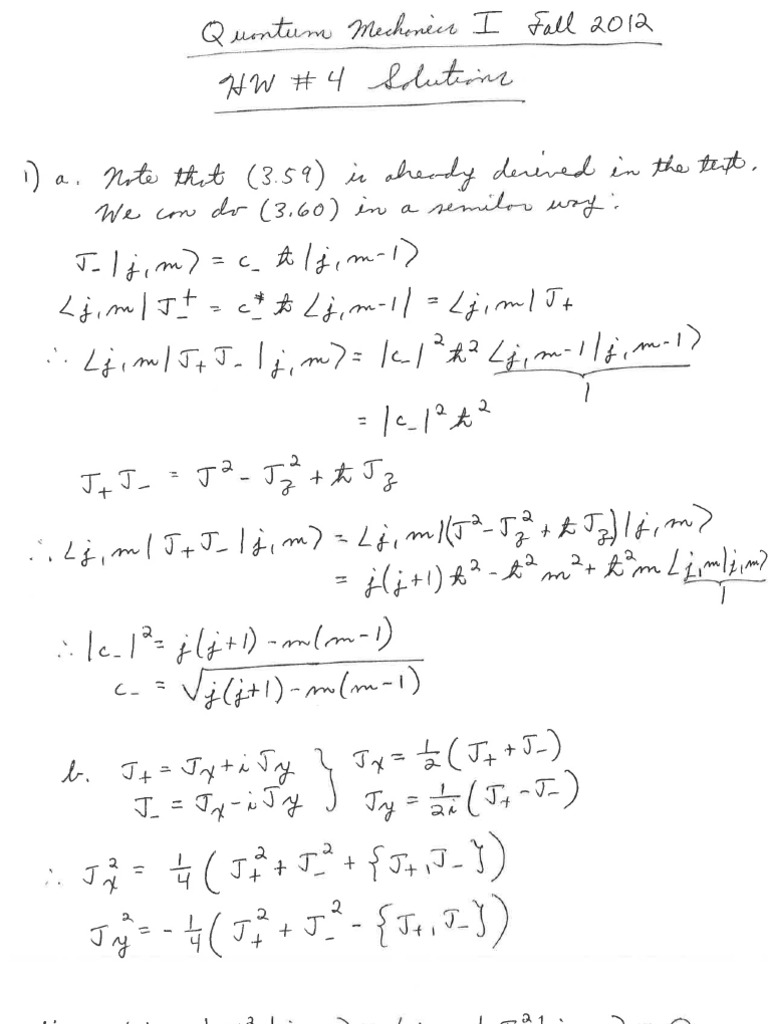 Quantum Mechanics I Fall 2012
HW # 4 Solutions
1) a. Note that (3.59) is already derived in the text.
We can do (3.60) in a similar way:
J₋|j,m⟩ = c₋ ħ|j,m-1⟩
⟨j,m|J₋† = c₋* ħ ⟨j,m-1| = ⟨j,m|J₊
∴ ⟨j,m|J₊J₋|j,m⟩ = |c₋|² ħ² ⟨j,m-1|j,m-1⟩
1
= |c₋|² ħ²
J₊J₋ = J² - J_z² + ħ J_z
∴ ⟨j,m|J₊J₋|j,m⟩ = ⟨j,m|(J² - J_z² + ħ J_z)|j,m⟩
= j(j+1)ħ² - ħ²m² + ħ²m ⟨j,m|j,m⟩
1
∴ |c₋|² = j(j+1) - m(m-1)
c₋ = √(j(j+1) - m(m-1))
b. J₊ = J_x + i J_y } J_x = 1/2 (J₊ + J₋)
J₋ = J_x - i J_y } J_y = 1/2i (J₊ - J₋)
∴ J_x² = 1/4 (J₊² + J₋² + {J₊, J₋})
J_y² = -1/4 (J₊² + J₋² - {J₊, J₋})